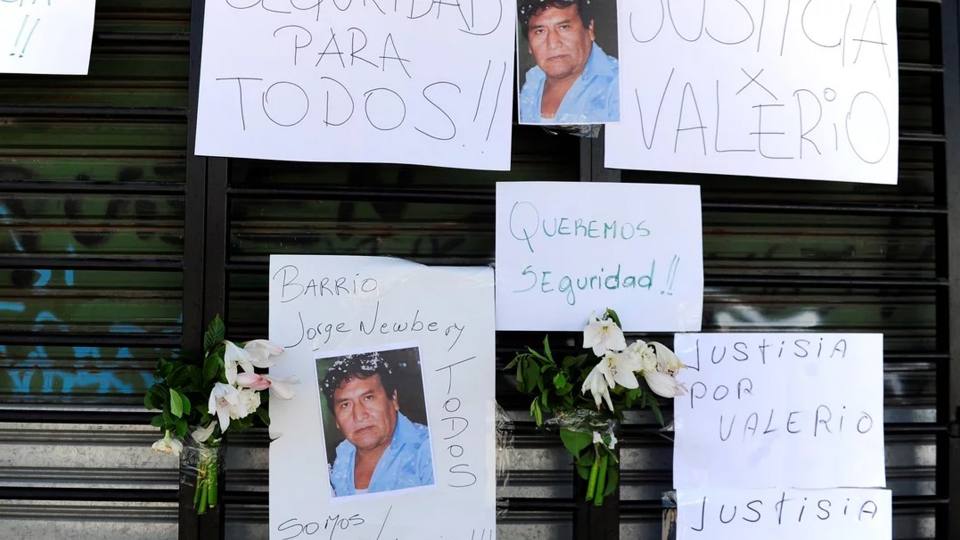 !!
SEGURIDAD
PARA
TODOS!!
JUSTICIA
X
VALERIO
QUEREMOS
SEguridad!!
BARRIO
Jorge Newbery
TODOS
SOMOS
JUSTISIA
POR
VALERIO
JUSTISIA